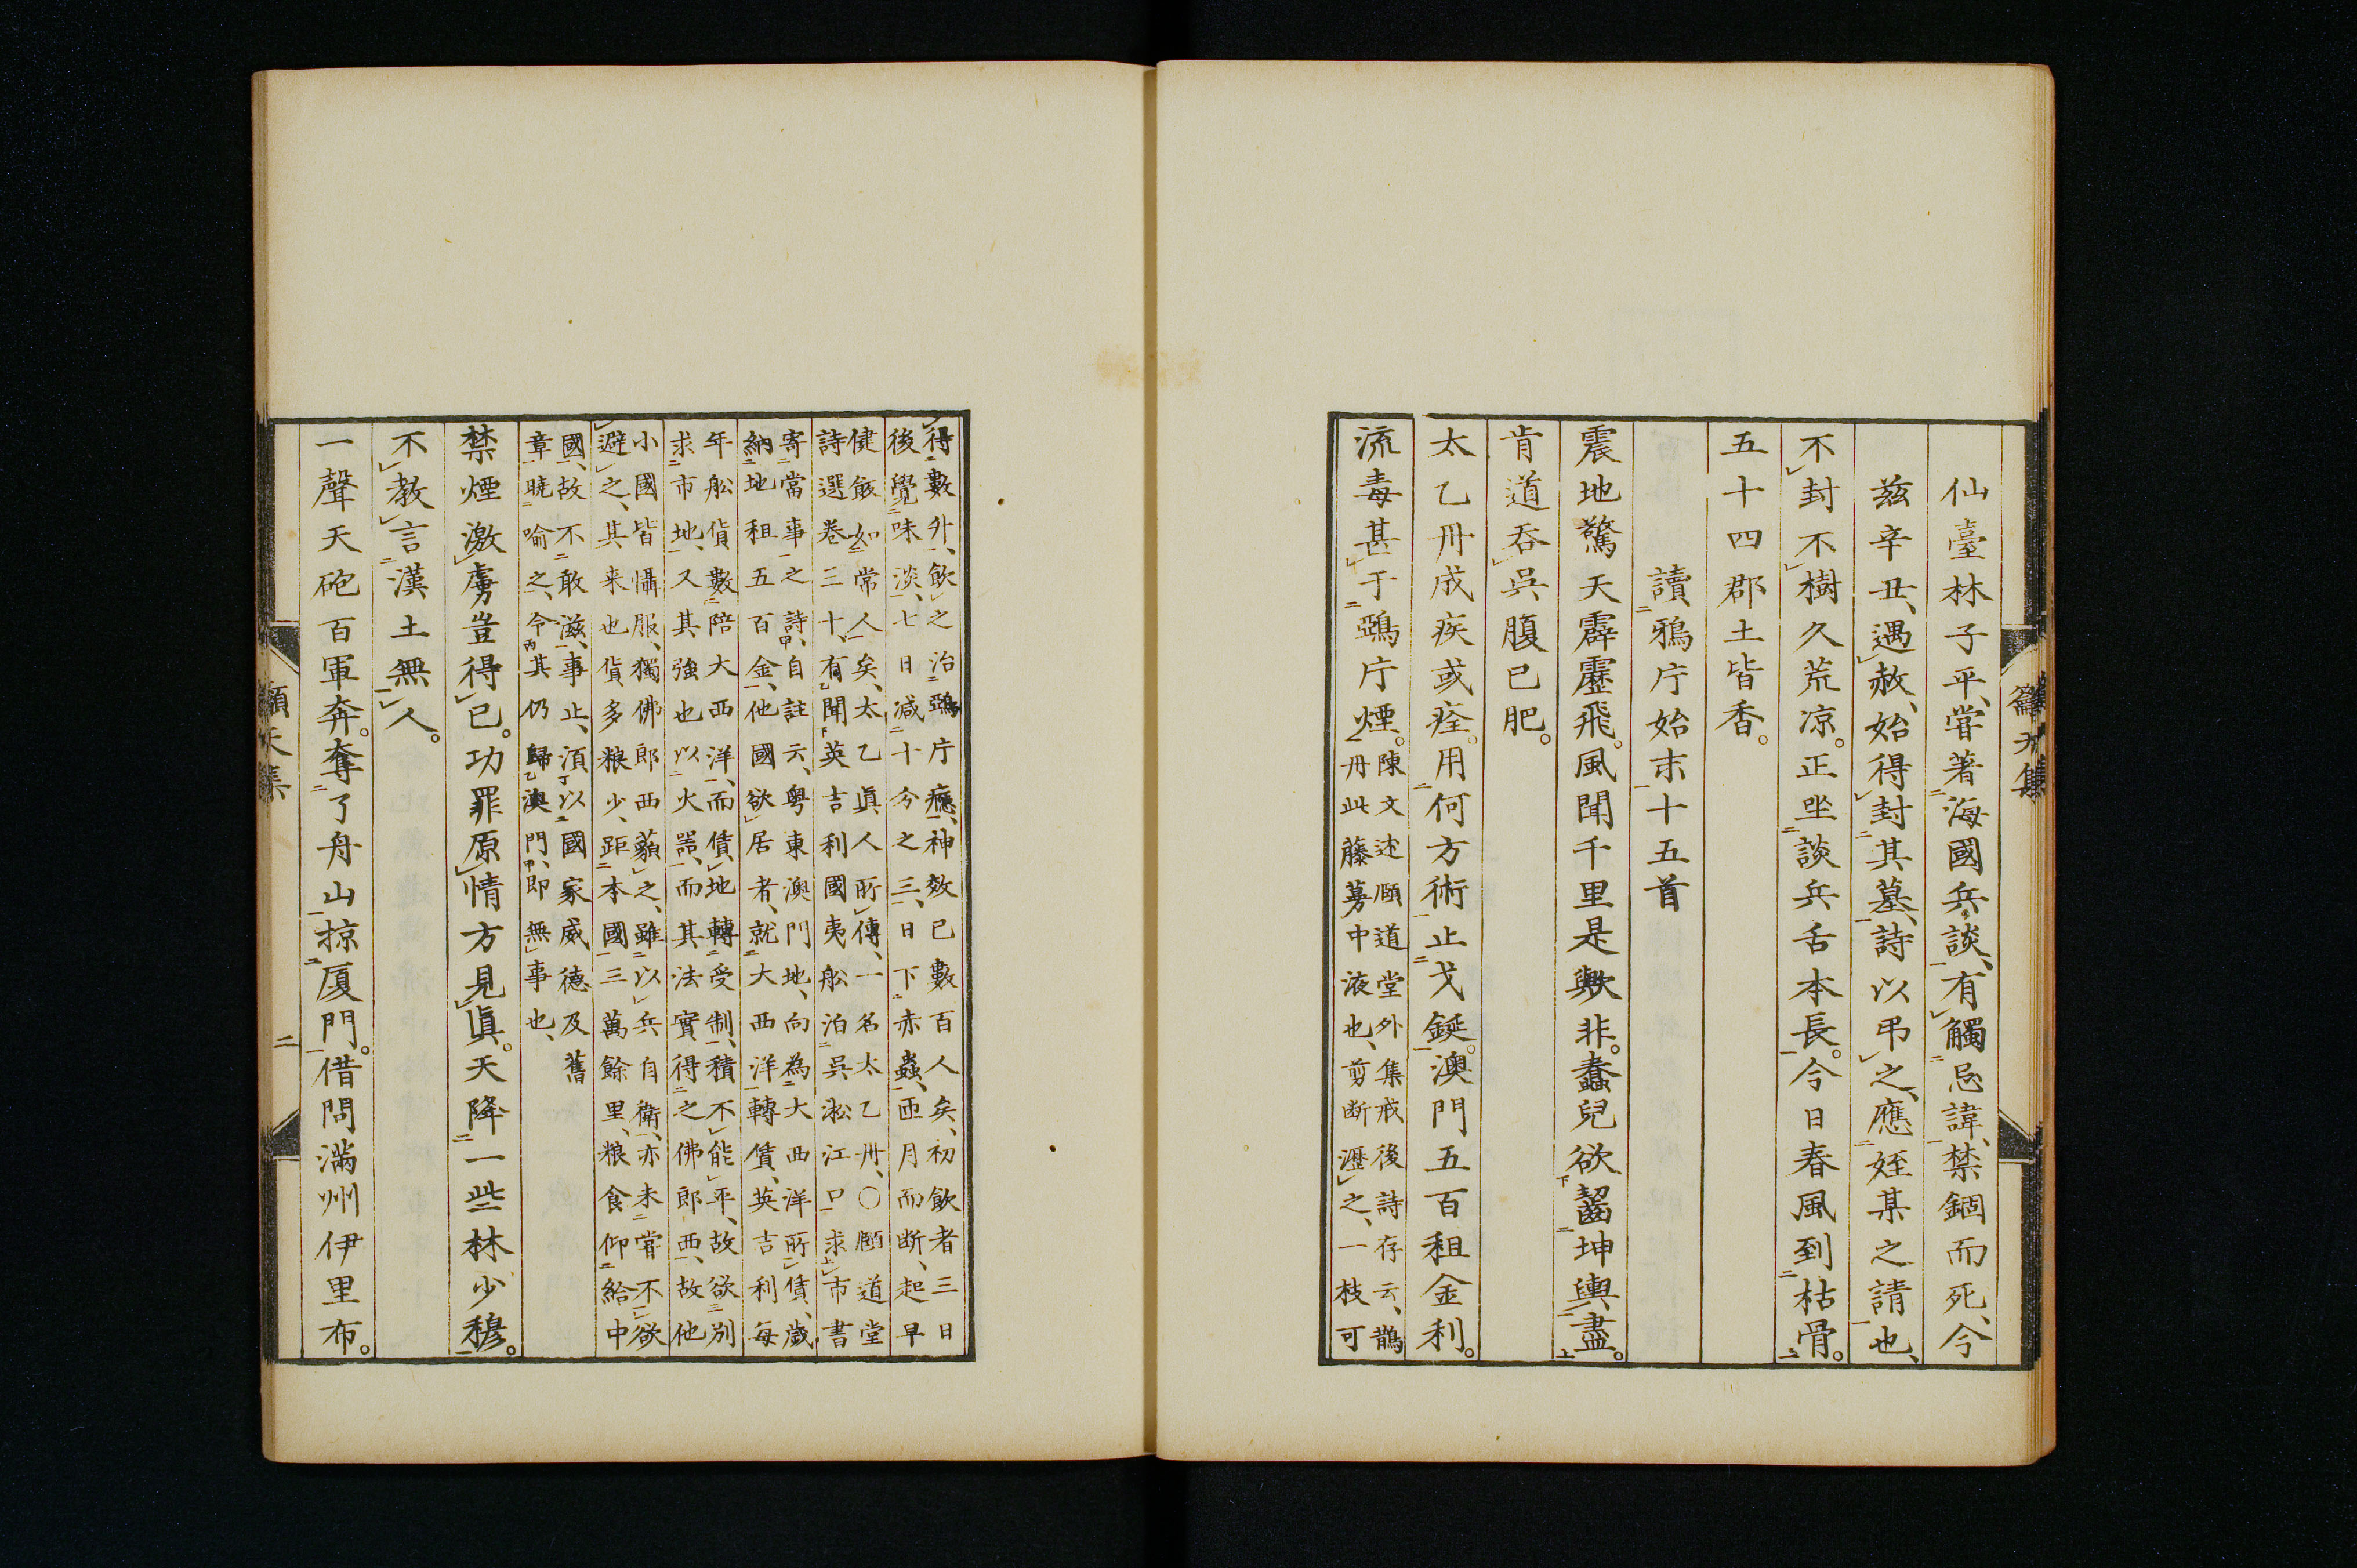 仙臺林子平、嘗著海國兵談、有觸忌諱、禁錮而死、今
兹辛丑、遇赦、始得封其墓、詩以弔之、應姪某之請也、
不封不樹久荒凉。正坐談兵舌本長。今日春風到枯骨。
五十四郡土皆香。
讀鴉片始末十五首
震地驚天霹靂飛。風聞千里是歟非。蠢兒欲齧坤輿盡。
肯道吞吳腹已肥。
太乙丹成疾或痊。用何方術止戈鋋。澳門五百租金利。
流毒甚于鴉片煙。
陳文述頤道堂外集戒後詩存云、鵲
丹此藤蔓中液也、剪斷瀝之、一枝可
得數外、飲之治鴉片癮、神效已數百人矣、初飲者三日
後覺味淡、七日减十分之三、日下赤蟲、匝月而断、起早
健飯如常人矣、太乙眞人所傳、一名太乙丹、〇頤道堂
詩選卷三十、有聞英吉利國夷舩泊吳淞江口求市書
寄當事之詩、自註云、粤東澳門地、向為大西洋所賃、歲
納地租五百金、他國欲居者、就大西洋轉賃、英吉利每
年舩貨數陪大西洋、而賃地轉受制、積不能平、故欲別
求市地、又其強也以火器、而其法實得之佛郎西、故他
小國皆懾服、獨佛郎西藐之、雖以兵自衛、亦未嘗不欲
避之、其来也貨多粮少、距本國三萬餘里、粮食仰給中
國、故不敢滋事止、湏以國家威德及舊
章曉喻之、令其仍歸澳門、即無事也、
禁煙激虜豈得已。功罪原情方見眞。天降一些林少穆。
不教言漢土無人。
一聲天砲百軍奔。奪了舟山掠厦門。借問滿州伊里布。
二